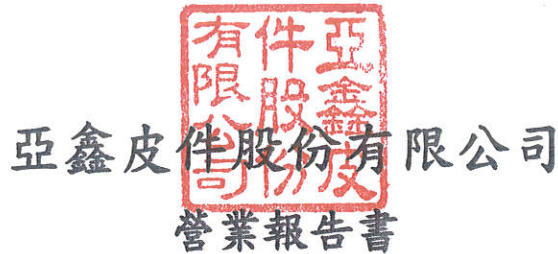 亞鑫皮件股份有限公司
亞鑫皮件股份有限公司
營業報告書